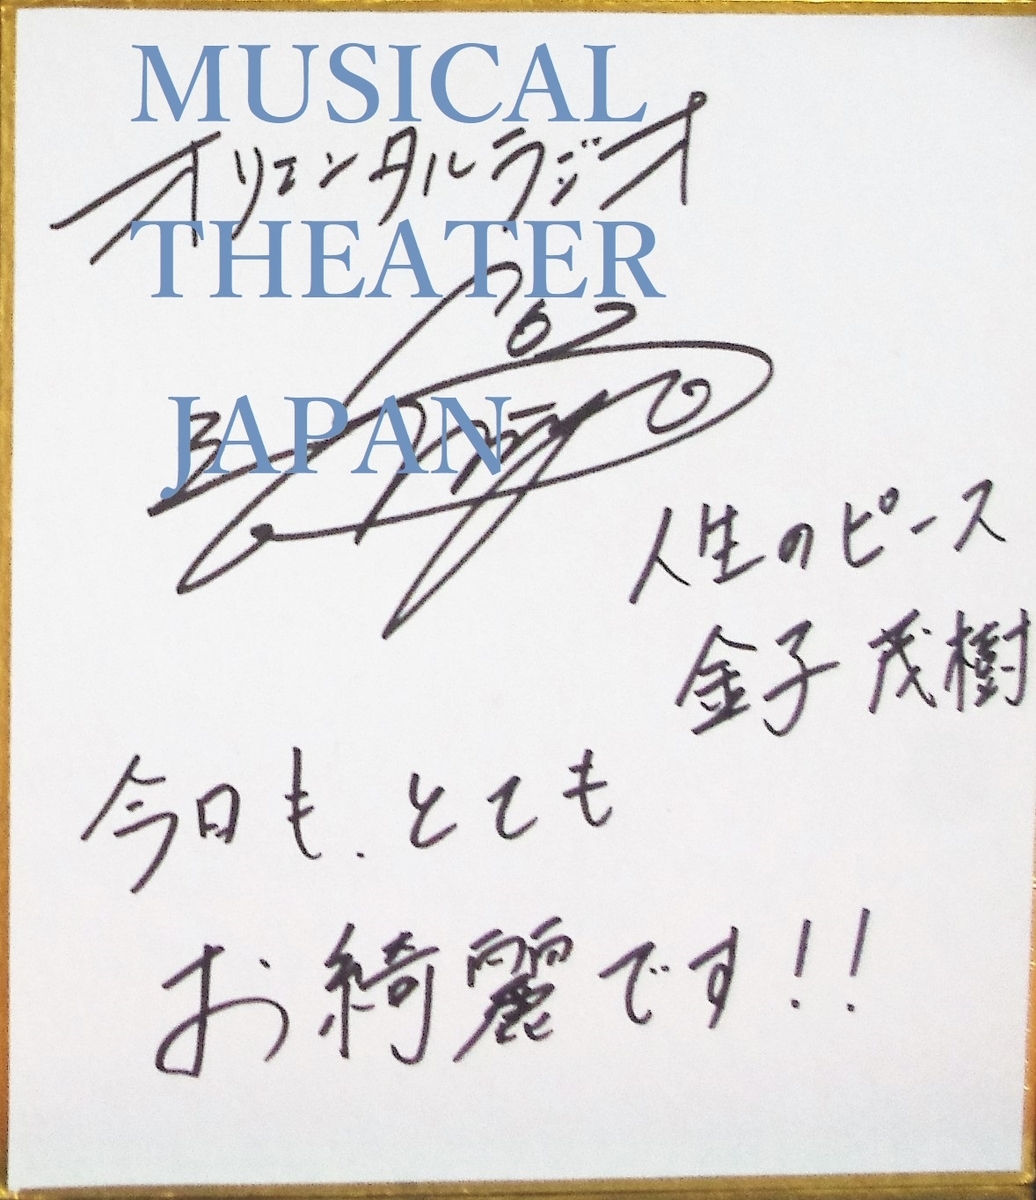 MUSICAL
オリエンタルラジオ
THEATER
JAPAN
人生のピース
金子 茂樹
今日も、とても
お綺麗です!!